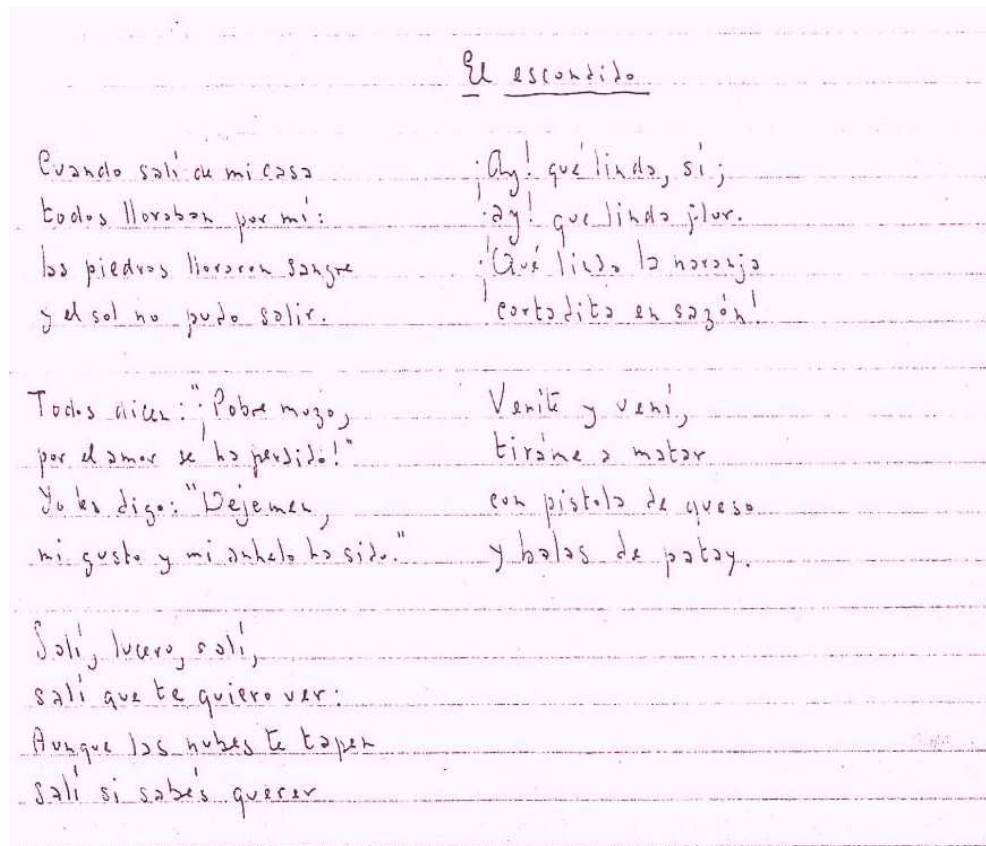 El escondido
Cuando salí de mi casa
todos lloraban por mí:
las piedras lloraron sangre
y el sol no pudo salir.
Todos dicen: "¡Pobre mozo,
por el amor se ha perdido!"
Yo les digo: "Dejemen,
mi gusto y mi anhelo ha sido."
Salí, lucero, salí,
salí que te quiero ver:
Aunque las nubes te tapen
salí si sabés querer
¡Ay! qué linda, sí;
¡ay! que linda flor.
¡Qué linda la naranja
cortadita en sazón!
Venite y vení,
tiráme a matar
con pistola de queso
y balas de patay.